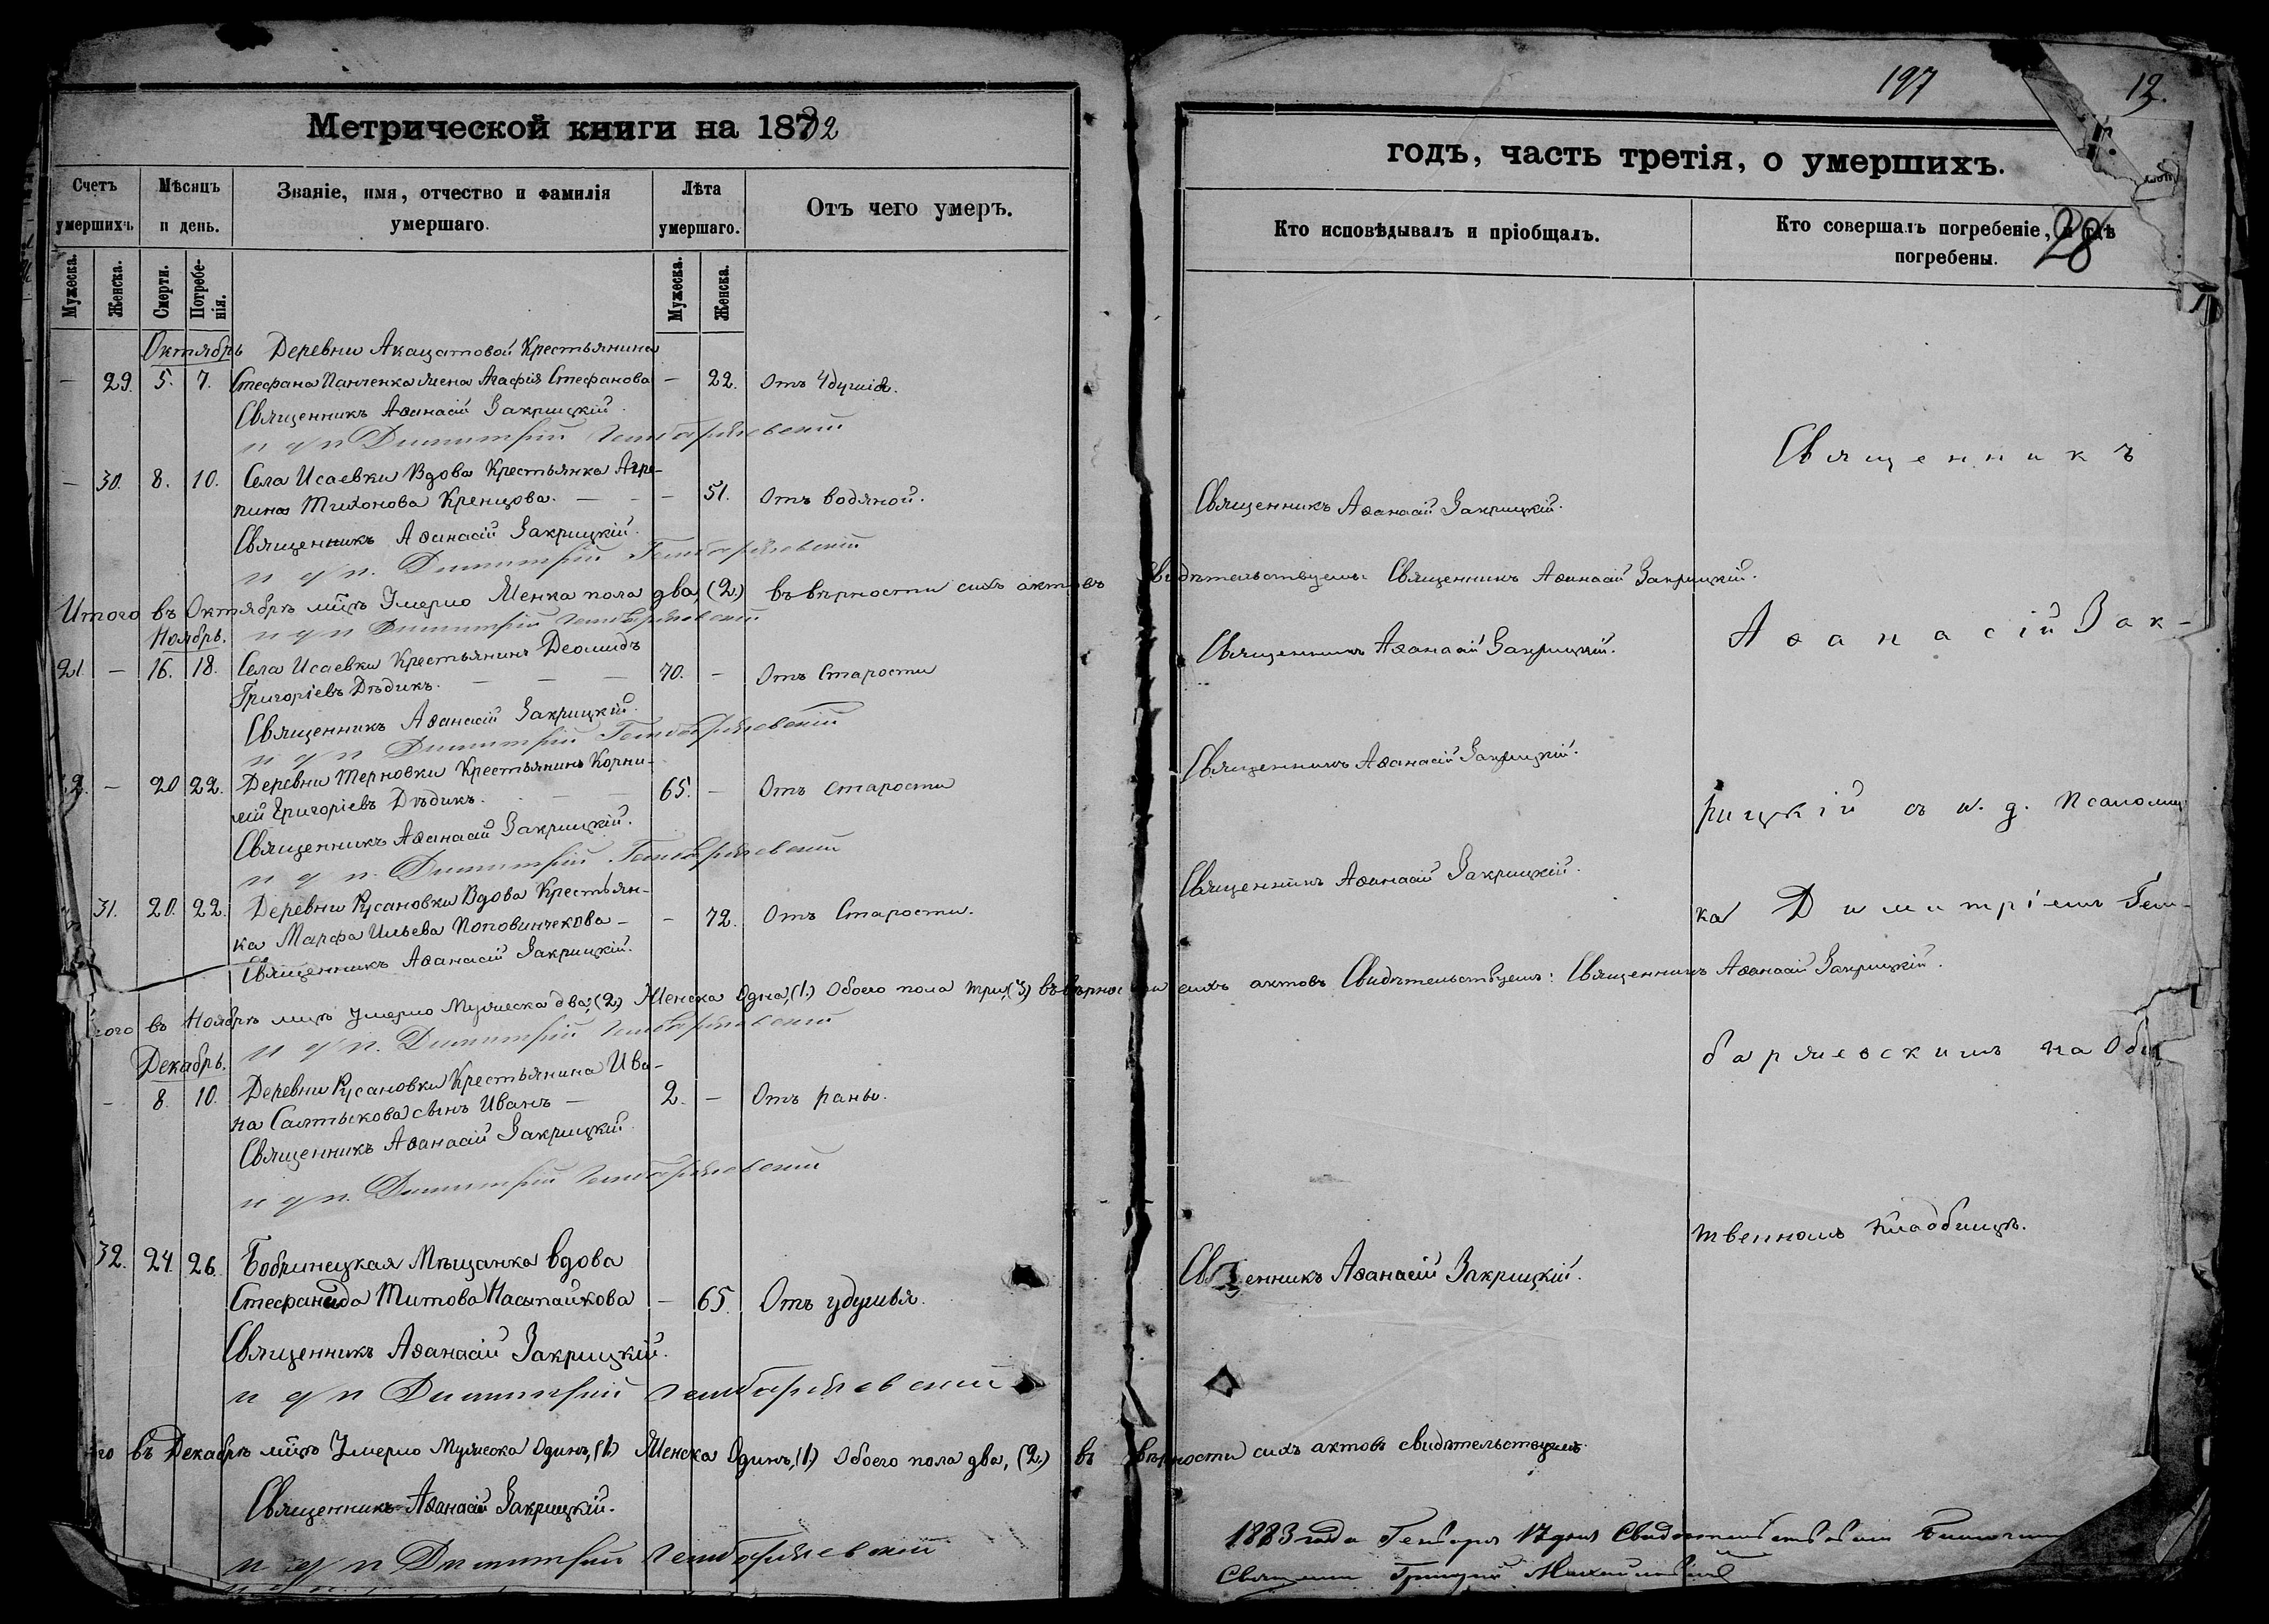 Метрической книги на 1882
Счетъ умершихъ.
Мѣсяцъ и день.
Званіе, имя, отчество и фамилія умершаго.
Лѣта умершаго.
Отъ чего умеръ.
Мужеска.
Женска.
Смерти.
Погребенія.
Мужеска.
Женска.
Октябрь Деревни Акацатовой Крестьянина
— 29. 5. 7. Стефана Панченка жена Агафія Стефанова — 22. Отъ Удушія.
Священникъ Аѳанасій Закрицкій.
и д п Димитрій
— 30. 8. 10. Села Исаевки Вдова Крестьянка Агре-
пина Тихонова Кренцова. — 51. Отъ водяной.
Священникъ Аѳанасій Закрицкій.
и д п. Димитрій
Итого въ Октябрѣ мцѣ Умерло Женска пола два, (2.) въ вѣрности сихъ актовъ Свидѣтельствуемъ: Священникъ Аѳанасій Закрицкій.
и д п Димитрій
Ноябрь.
21. — 16. 18. Села Исаевки Крестьянинъ Деомидъ
Григоріевъ Дѣдикъ. 70. — Отъ Старости
Священникъ Аѳанасій Закрицкій.
и д п Димитрій
— 20 22. Деревни Терновки Крестьянинъ Корни-
лій Григоріевъ Дѣдикъ. 65. — Отъ старости
Священникъ Аѳанасій Закрицкій.
и д п. Димитрій
31. 20. 22. Деревни Русановки Вдова Крестьян-
ка Марфа Ильева Поповинчекова — 72. Отъ Старости.
Священникъ Аѳанасій Закрицкій.
въ Ноябрѣ мцѣ умерло Мужеска два, (2.) Женска Одна, (1.) Обоего пола три, (3) въ вѣрности сихъ актовъ Свидѣтельствуемъ: Священникъ Аѳанасій Закрицкій.
и д п. Димитрій
Декабрь.
— 8. 10. Деревни Русановки Крестьянина Ива-
на Салтыкова сынъ Иванъ — 2. — Отъ раны.
Священникъ Аѳанасій Закрицкій
и д п. Димитрій
32. 24. 26. Бобринецкая Мѣщанка вдова
Стефанида Титова Насыпайкова — 65. Отъ удушья.
Священникъ Аѳанасій Закрицкій.
и д п Димитрій
въ Декабрѣ мцѣ Умерло Мужеска Одинъ, (1.) Женска Одинъ, (1.) Обоего пола два, (2.) въ вѣрности сихъ актовъ свидѣтельствуемъ.
Священникъ Аѳанасій Закрицкій.
и д п Димитрій
197
12.
годъ, часть третія, о умершихъ.
Кто исповѣдывалъ и пріобщалъ.
Кто совершалъ погребеніе, и гдѣ погребены.
28
Священникъ Аѳанасій Закрицкій.
Священникъ Аѳанасій Закрицкій.
Священникъ Аѳанасій Закрицкій.
Священникъ Аѳанасій Закрицкій.
Священникъ Аѳанасій Закрицкій.
Священникъ
Аѳанасій Зак-
рицкій съ и. д. Псаломщ
ка Димитріемъ Гем-
баржевскимъ на Общ
твенномъ Кладбищѣ.
1883 года Генваря 17 дня
Григорій